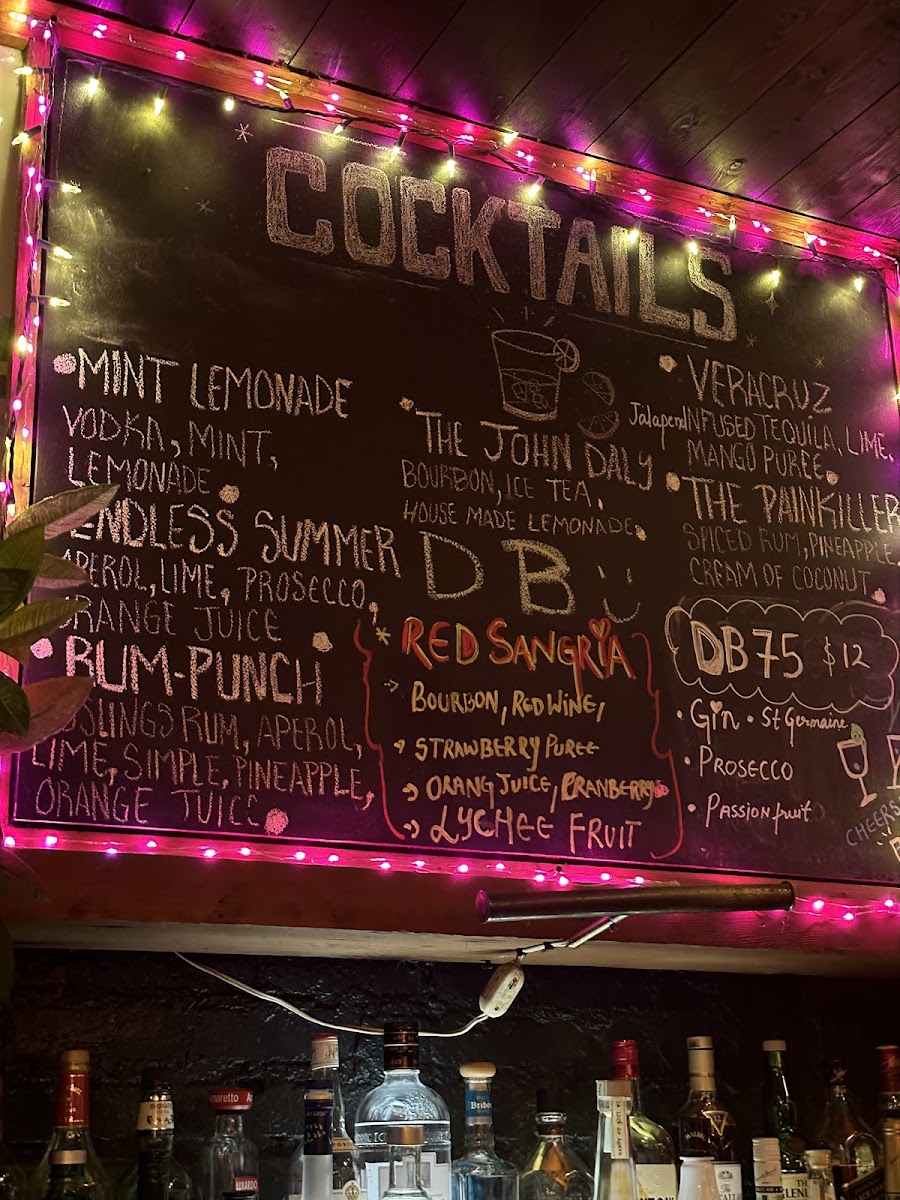 COCKTAILS
MINT LEMONADE
VODKA, MINT,
LEMONADE
ENDLESS SUMMER
APEROL, LIME, PROSECCO,
ORANGE JUICE
RUM-PUNCH
RUM, APEROL,
LIME, SIMPLE, PINEAPPLE,
ORANGE JUICE
THE JOHN DALY
BOURBON, ICE TEA,
HOUSE MADE LEMONADE
DB
* RED SANGRIA
→ BOURBON, RED WINE,
→ STRAWBERRY PUREE
→ ORANG JUICE, CRANBERRY
→ LYCHEE FRUIT
VERACRUZ
JalapenINFUSED TEQUILA, LIME,
MANGO PUREE
THE PAINKILLER
SPICED RUM, PINEAPPLE,
CREAM OF COCONUT
DB75 $12
• Gin • St Germaine
• PROSECCO
• PASSION fruit
CHEERS
Amaretto